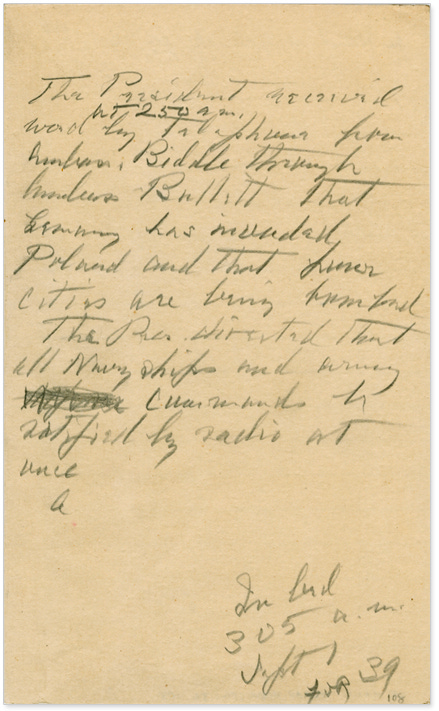 The President received
at 2 50 a.m.
word by telephone from
Ambas. Biddle through
Ambas Bullitt that
Germany has invaded
Poland and that four
cities are being bombed
The Pres. directed that
all Navy ships and army
commands be
notified by radio at
once
In bed
3 05 a.m.
Sept 1 39
FDR
108